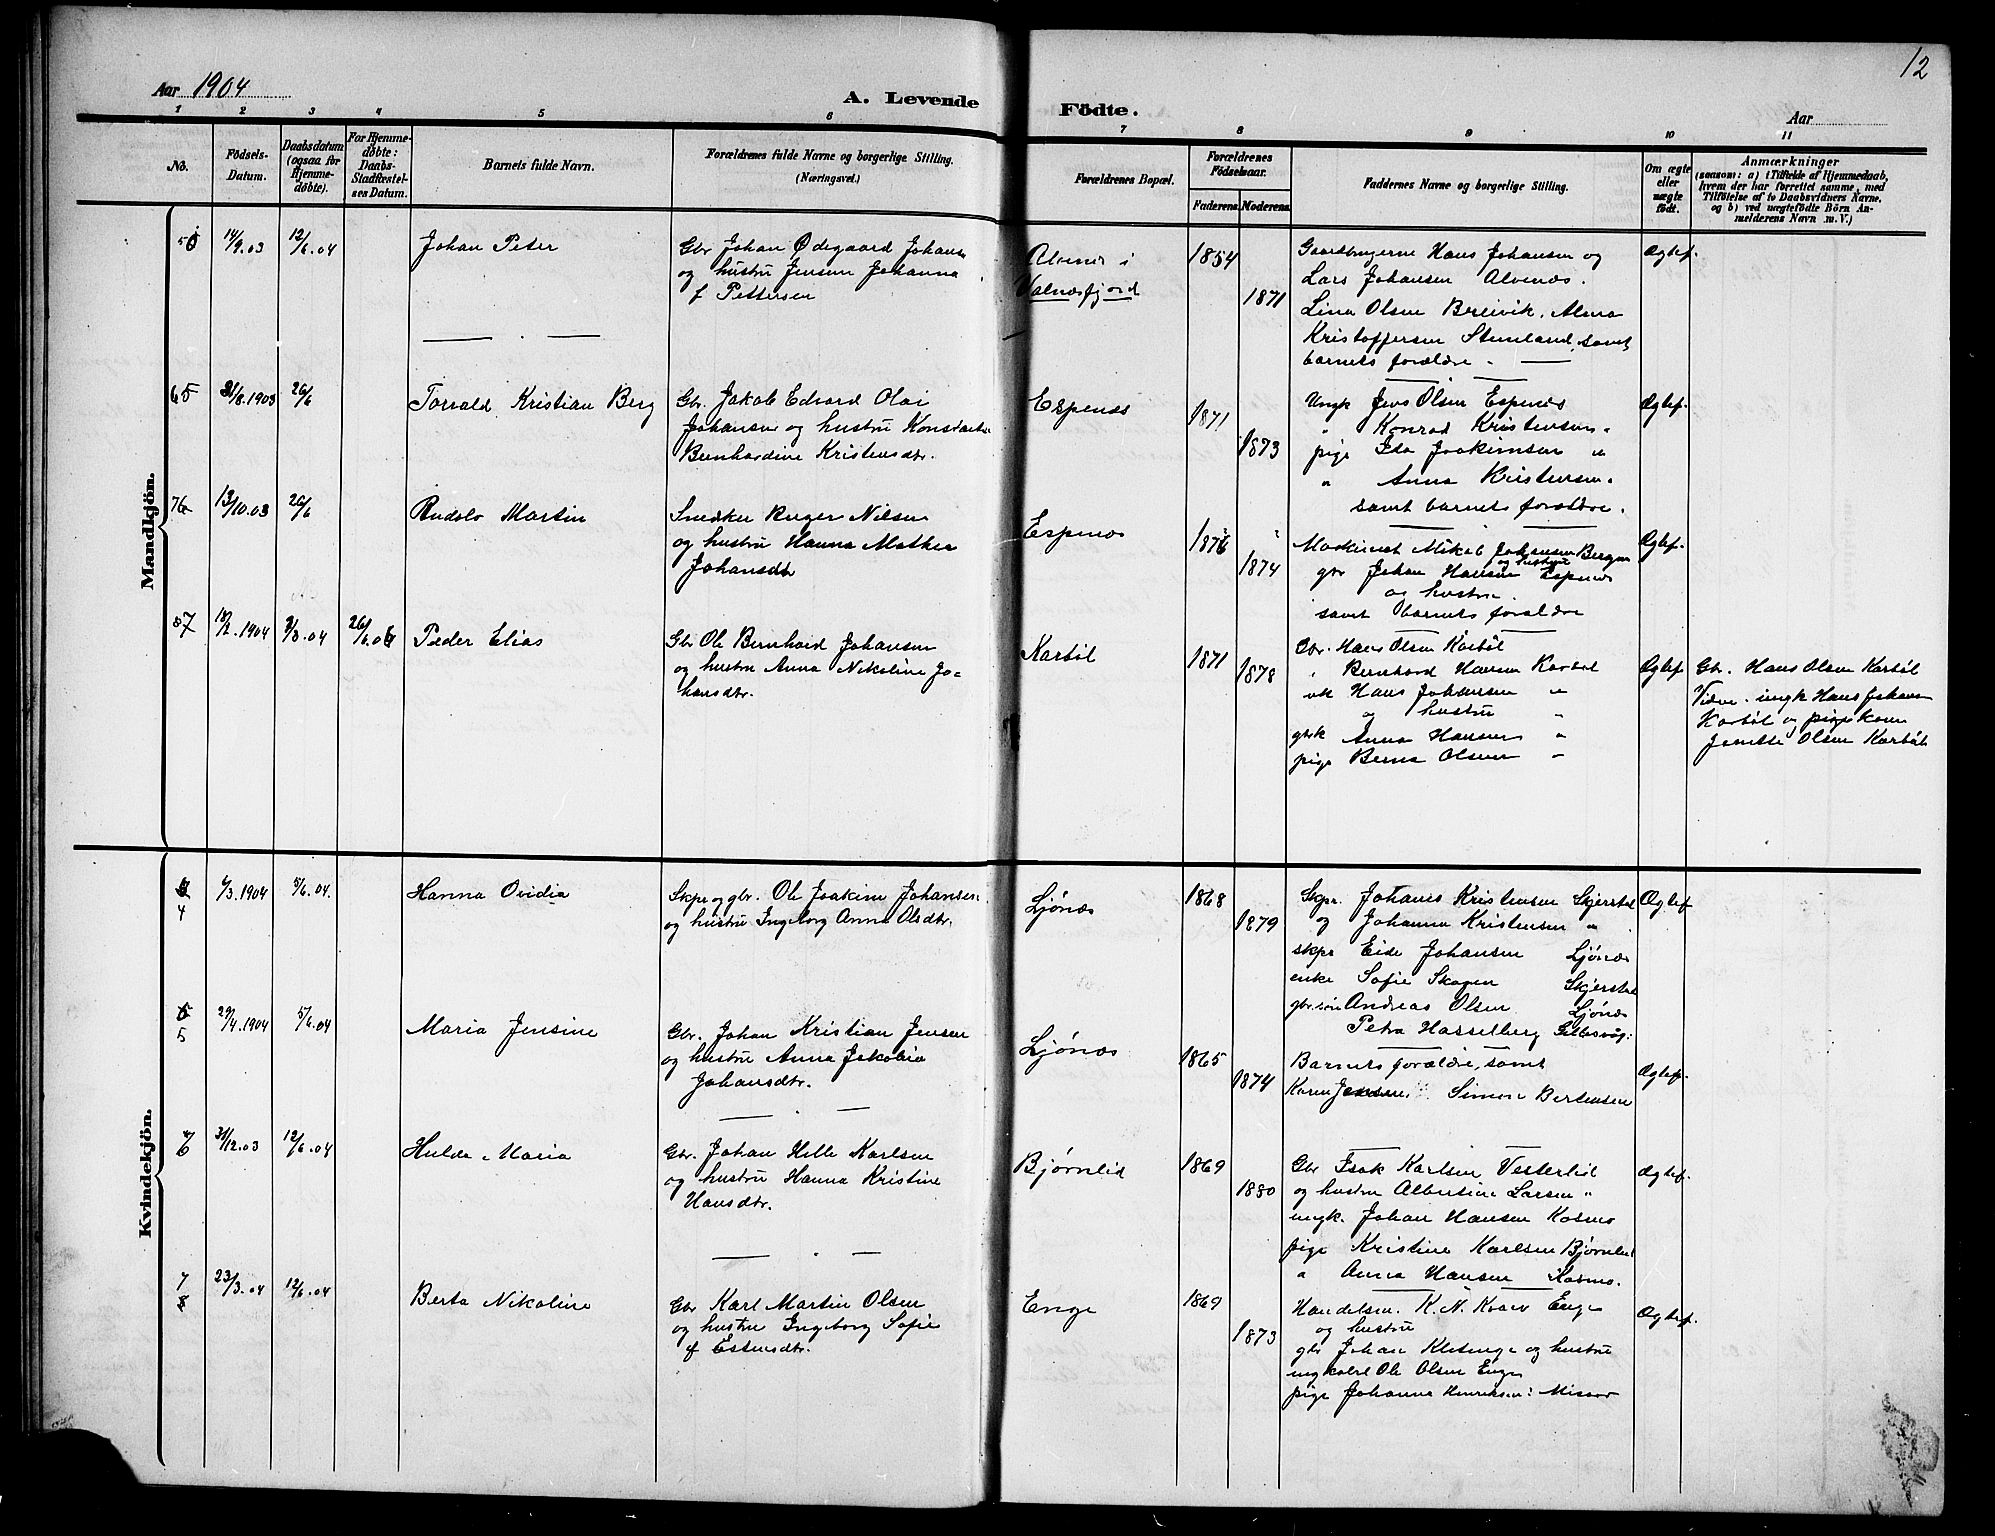 12
Aar 1904
A. Levende Födte.
Aar
1 2 3 4 5 6 7 8 9 10 11
No.
Födsels-Datum.
Daabsdatum (ogsaa for Hjemme-døbte).
For Hjemme-døbte: Daabs-Stadfæstel-ses Datum.
Barnets fulde Navn.
Forældrenes fulde Navne og borgerlige Stilling. (Næringsvei.)
Forældrenes Bopæl.
Forældrenes Födselsaar.
Faderens. Moderens.
Faddernes Navne og borgerlige Stilling.
Om ægte eller uægte födt.
Anmærkninger
(saasom: a) i Tilfælde af Hjemmedaab,
hvem der har forrettet samme, med
Tilföielse af to Daabsvidners Navne.
og b) ved uægtefödte Börn An-
melderens Navn m. V.)
Mandkjön.
14/9.03 12/6.04 Johan Peter
Gbr Johan Ødegaard Johansen
og hustru Jensen Johanna
f Pettersen
Alvenes i
Valnesfjord
1854
1871
Gaardbrugerne Hans Johansen og
Lars Johansen Alvenæs.
Lina Olsen Breivik, Alma
Kristoffersen Stemland, samt
barnets forældre.
Ægtef.
31/8.1903 26/6 Torvald Kristian Berg
Gbr. Jakob Edvard Olai
Johansen og hustru
Bernhardine Kristensdtr.
Espenæs
1871
1873
Ungk Jens Olsen Espenes
" Konrad Kristensen "
pige Ida Joakimsen "
" Anna Kristensen "
samt barnets forældre.
Ægtef.
13/10.03 26/6 Rudolv Martin
Snedker Birger Nilsen
og hustru Hanna Mathea
Johansdtr
Espenæs
1876
1874
Maskinist Mikal Johansen Bergen
og hustru
gbr Johan Hansen Espenes
og hustru.
samt barnets forældre
Ægtef.
18/2.1904 3/3.04 26/6.04 Peder Elias
Gbr Ole Bernhard Johansen
og hustru Anna Nikoline Jo-
hansdtr.
Karbøl
1871
1878
Gbr. Hans Olsen Karbøl
" Bernhard Hansen Karbøl
uk Hans Johansen "
og hustru "
gbrk Anna Hansen "
pige Berna Olsen "
Ægtef
Gbr. Hans Olsen Karbøl
Vidne. ungk Hans Johansen
Karbøl og pige Karen
Jenette Olsen Karbøl
Kvindekjön.
4
6/3.1904 5/6.04. Hanna Ovidia
Skpr og gbr. Ole Joakim Johansen
og hustru Ingeborg Anna Olsdtr.
Ljönæs
1868
1879
Skpr. Johanes Kristensen Skjerstad
og Johanna Kristensen "
skpr Eide Johansen Ljönæs
enke Sofie Skagen Skjerstad
Andreas Olsen Ljönæs
Petra Hasselberg
Ægtef
5
29/4.1904 5/6.04 Maria Jensine
Gbr. Johan Kristian Jensen
og hustru Anna Jakobia
Johansdtr.
Ljönæs
1865
1874
Barnets forældre, samt
Karen Jensen. Simon Bertensen
Ægtef.
6
31/12.03 12/6.04 Hulda Maria
Gbr. Johan Hille Karlsen
og hustru Hanna Kristine
Hansdtr.
Bjørnlid
1869
1880
Gbr Isak Karlsen Vesterlid
og hustru Albertine Larsen "
ungk. Johan Hansen Kosmo
pige Kristine Karlsen Bjørnlid
" Anna Hansen Kosmo.
Ægtef.
7
23/3.04 12/6.04 Berta Nikoline
Gbr Karl Martin Olsen
og hustru Ingeborg Sofie
f Estensdtr.
Enge
1869
1873
Handelsm. K. N. Kvæv Enge
og hustru
gbr Johan Kletenge og hustru
Ole Olsen Enge
pige Johanna Henriksen: Misvær
Ægtef.